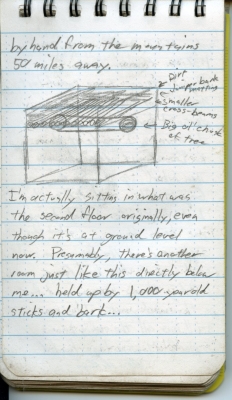 by hand from the mountains
50 miles away.
Dirt
Juniper bark
matting
smaller
cross-beams
Big ol' chunk
of tree
I'm actually sitting in what was
the second floor originally, even
though it's at ground level
now. Presumably, there's another
room just like this directly below
me... held up by 1,000 year old
sticks and bark...